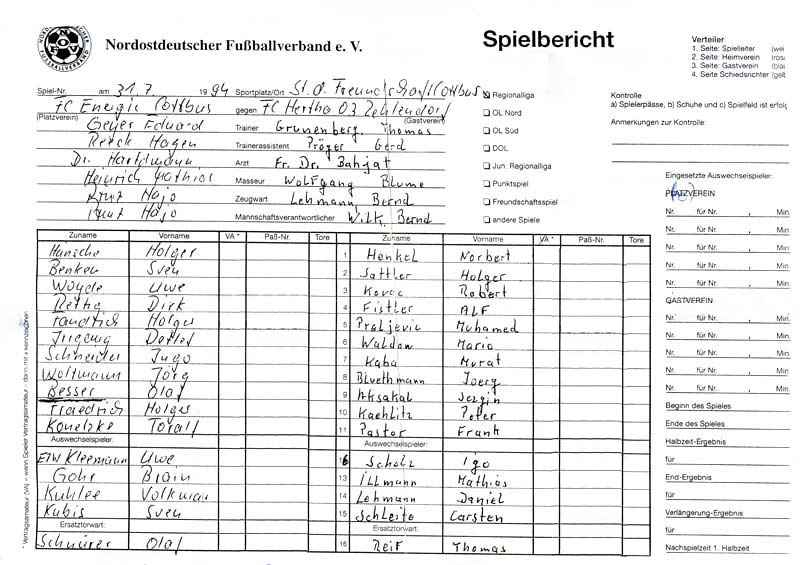 Nordostdeutscher Fußballverband e. V.
Spielbericht
Verteiler
1. Seite: Spielleiter (wei
2. Seite: Heimverein (rosa
3. Seite: Gastverein (blau
4. Seite Schiedsrichter (gelb
Spiel-Nr. am 31.7 1994 Sportplatz/Ort St. d. Freundschaft Cottbus
FC Energie Cottbus gegen FC Hertha 03 Zehlendorf
(Platzverein) (Gastverein)
Geyer Eduard Trainer Grunenberg, Thomas
Reeck Hagen Trainerassistent Pröger Gerd
Dr. Hartmann Arzt Fr. Dr. Bahjat
Heinrich Mathias Masseur Wolfgang Blume
Hajo Zeugwart Lehmann, Bernd
Hajo Mannschaftsverantwortlicher Wilk, Bernd
Regionalliga
OL Nord
OL Süd
DOL
Jun. Regionalliga
Punktspiel
Freundschaftsspiel
andere Spiele
Kontrolle
a) Spielerpässe, b) Schuhe und c) Spielfeld ist erfolg
Anmerkungen zur Kontrolle:
Eingesetzte Auswechselspieler:
PLATZVEREIN
Nr. für Nr. , Min
Nr. für Nr. , Min
Nr. für Nr. , Min
Nr. für Nr. , Min
Nr. für Nr. , Min
GASTVEREIN
Nr. für Nr. , Min
Nr. für Nr. , Min
Nr. für Nr. , Min
Nr. für Nr. , Min
Nr. für Nr. , Min
Beginn des Spieles
Ende des Spieles
Halbzeit-Ergebnis
für
End-Ergebnis
für
Verlängerung-Ergebnis
für
Nachspielzeit 1. Halbzeit
Zuname Vorname VA * Paß-Nr. Tore Zuname Vorname VA * Paß-Nr. Tore
Holger 1 Henkel Norbert
Benken Sven 2 Sattler Holger
Woyde Uwe 3 Kovac Robert
Rethe Dirk 4 Fistler Alf
Holger 5 Praljevic Muhamed
Irrgang Detlef 6 Waldow Mario
Schneider Ingo 7 Kaba Murat
Woltmann Jörg 8 Bluethmann Joerg
Besser Olaf 9 Aksakal Sergin
Holger 10 Kaehlitz Peter
Konetzke Toralf 11 Pastor Frank
Auswechselspieler: Auswechselspieler:
ETW Kleemann Uwe Scholz Igo
Gohr Brain 13 Illmann Mathias
Kuhlee Volkmar 14 Lehmann Daniel
Kubis Sven 15 Schleite Carsten
Ersatztorwart: Ersatztorwart:
Schnürer Olaf 16 Reif Thomas
* Vertragsamateur (VA) = wenn Spieler Vertragsamateur - dann mit x kennzeichnen